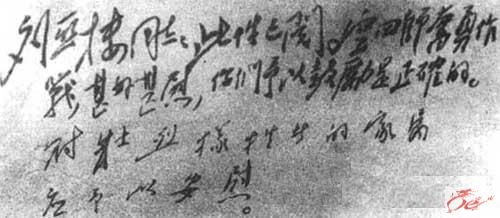 刘亚楼同志：此件已阅。空四师奋勇作
战甚好甚慰，你们予以奖励是正确的。
对壮烈牺牲的家属
应予以安慰。